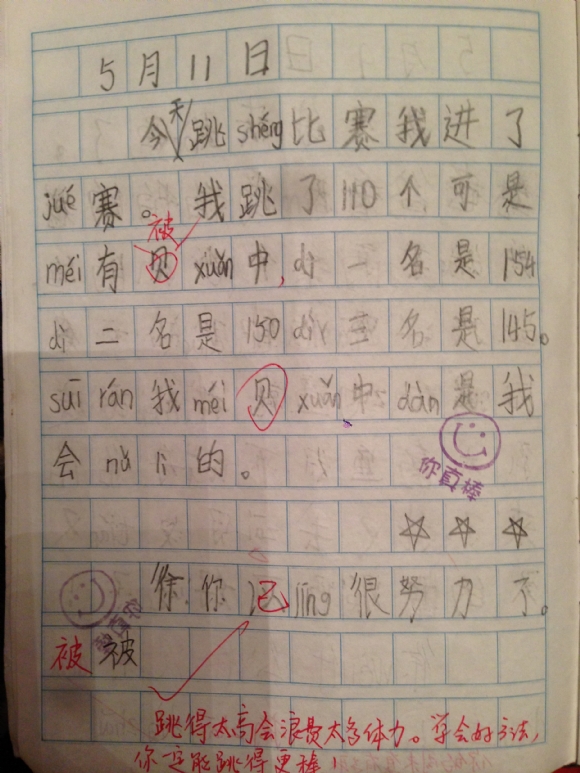 5月11日
今天跳shéng比赛我进了
jué赛。我跳了110个可是
被
méi有贝xuǎn中,dì一名是154
dì二名是150dì三名是145。
suī rán我méi贝xuǎn中dàn是我
会nǔ lì的。
你真棒
☆☆☆
你已jīng很努力了。
被被
跳得太高会浪费太多体力。学会好方法,
你一定能跳得更棒!